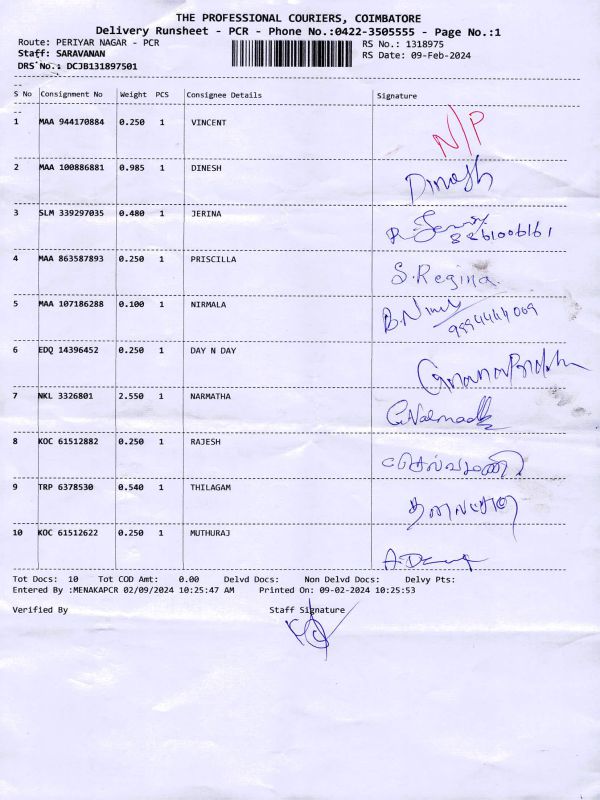 THE PROFESSIONAL COURIERS, COIMBATORE
Delivery Runsheet - PCR - Phone No.:0422-3505555 - Page No.:1
Route: PERIYAR NAGAR - PCR RS No.: 1318975
Staff: SARAVANAN RS Date: 09-Feb-2024
DRS No.: DCJB131897501
S No Consignment No Weight PCS Consignee Details Signature
1 MAA 944170884 0.250 1 VINCENT N/P
2 MAA 100886881 0.985 1 DINESH Dinesh
3 SLM 339297035 0.480 1 JERINA
4 MAA 863587893 0.250 1 PRISCILLA S.Regina
5 MAA 107186288 0.100 1 NIRMALA
6 EDQ 14396452 0.250 1 DAY N DAY
7 NKL 3326801 2.550 1 NARMATHA
8 KOC 61512882 0.250 1 RAJESH
9 TRP 6378530 0.540 1 THILAGAM
10 KOC 61512622 0.250 1 MUTHURAJ
Tot Docs: 10 Tot COD Amt: 0.00 Delvd Docs: Non Delvd Docs: Delvy Pts:
Entered By :MENAKAPCR 02/09/2024 10:25:47 AM Printed On: 09-02-2024 10:25:53
Verified By Staff Signature